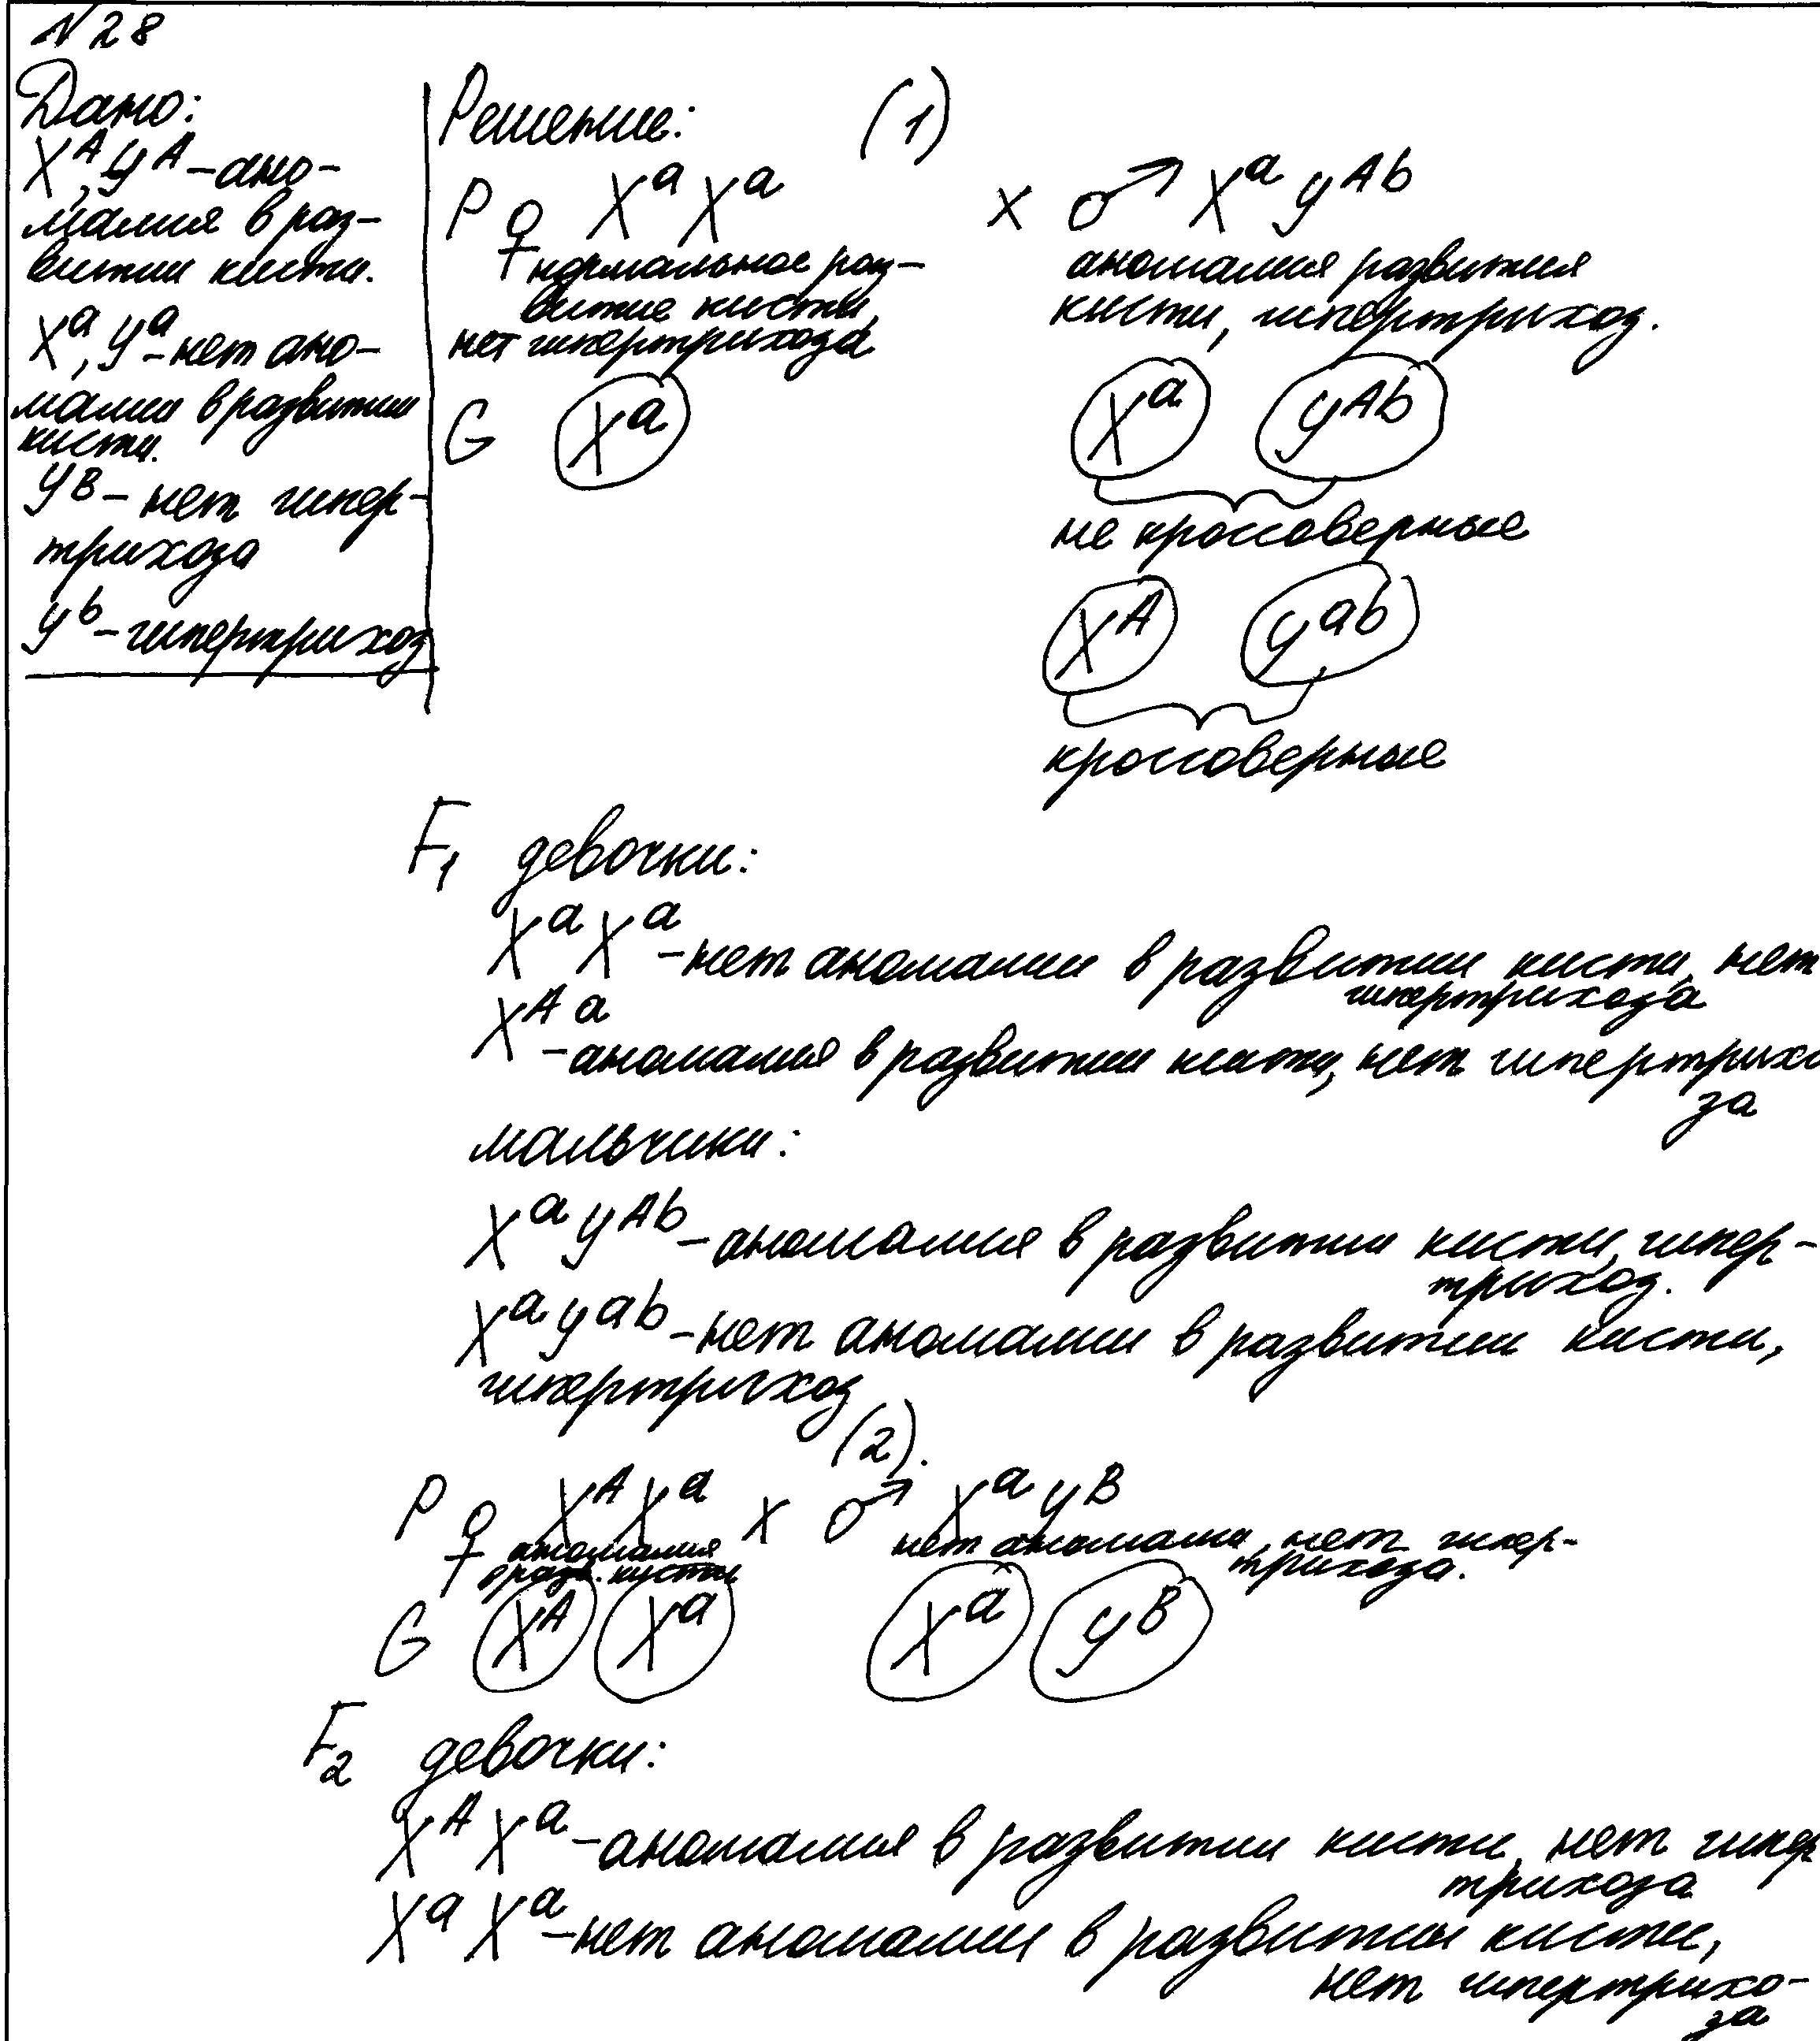 N28
Дано:
X^A, У^A – ано-
малия в раз-
витии кисти.
X^a, У^a – нет ано-
малии в развитии
кисти.
У^B – нет гипер-
трихоза
У^b – гипертрихоз
Решение: (1)
P ♀ X^a X^a x ♂ X^a У^Ab
нормальное раз-
витие кисти,
нет гипертрихоза
аномалия развития
кисти, гипертрихоз.
G X^a X^a У^Ab
не кроссоверные
X^A У^ab
кроссоверные
F1 девочки:
X^a X^a – нет аномалии в развитии кисти, нет
гипертрихоза
X^A a – аномалия в развитии кисти, нет гипертрихо
за
мальчики:
X^a У^Ab – аномалия в развитии кисти, гипер-
трихоз.
X^a У^ab – нет аномалии в развитии кисти,
гипертрихоз
(2).
P ♀ X^A X^a x ♂ X^a У^B
аномалия
в разв. кисти
нет аномалии, нет гипер-
трихоза.
G X^A X^a X^a У^B
F2 девочки:
X^A X^a – аномалия в развитии кисти, нет гипер
трихоза
X^a X^a – нет аномалии в развитии кисти,
нет гипертрихо-
за